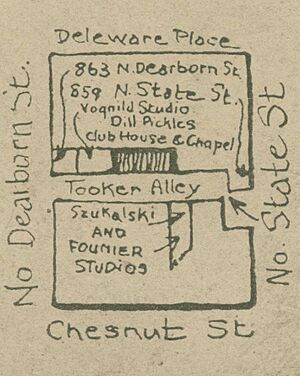 Deleware Place
863 N. Dearborn St.
859 N. State St.
Vognild Studio
Dill Pickles
Club House & Chapel
Tooker Alley
Szukalski
AND
FOUNIER
STUDIOS
No Dearborn St.
No. State St
Chesnut St